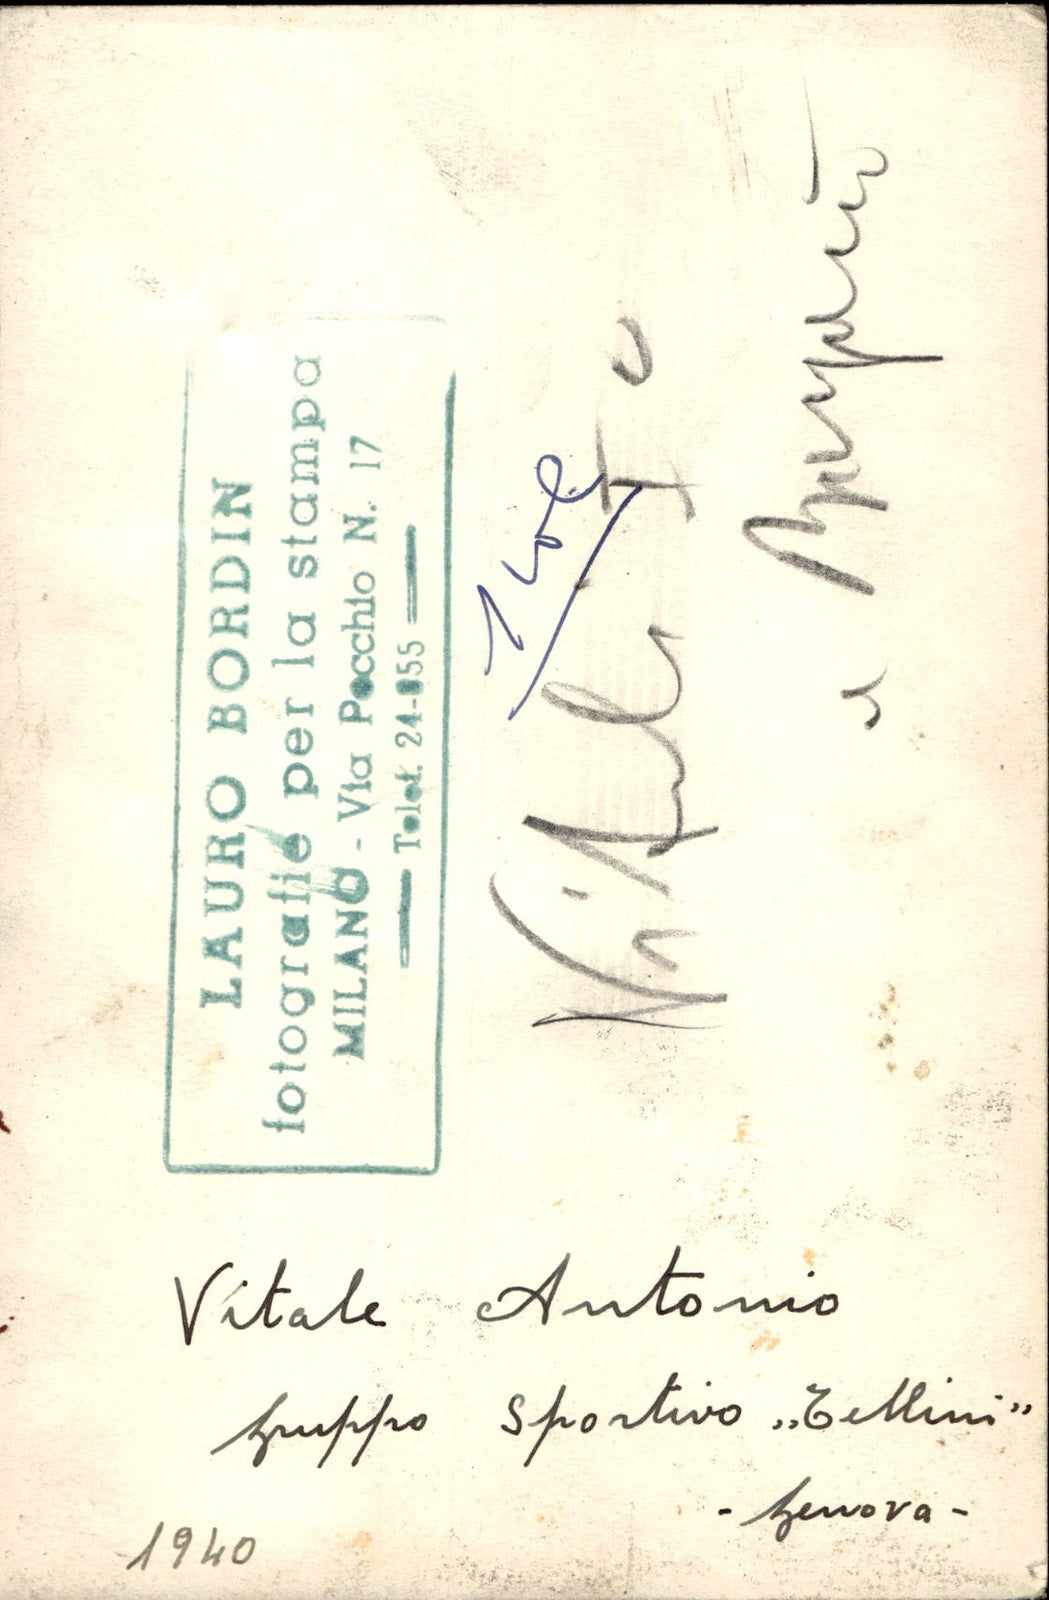 LAURO BORDIN
fotografie per la stampa
MILANO - Via Pacchio N. 17
Telef. 24-055
Vitale Antonio
Gruppo Sportivo „Tellini"
- Genova -
1940